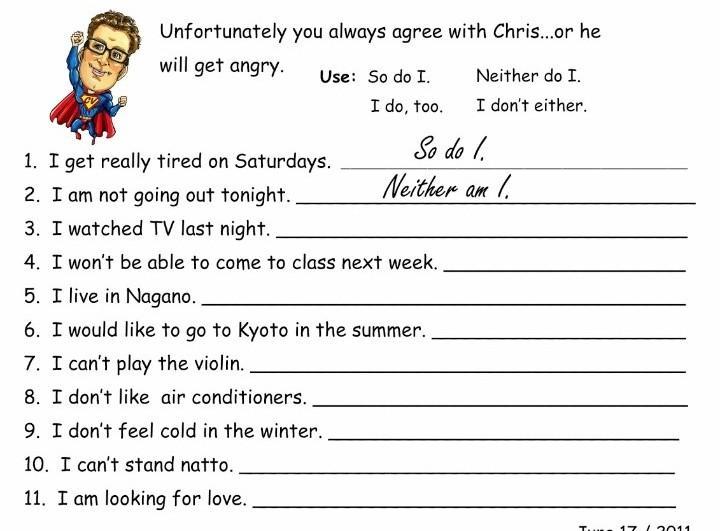 Unfortunately you always agree with Chris...or he
will get angry.
Use: So do I. Neither do I.
I do, too. I don't either.
CV
1. I get really tired on Saturdays. So do I.
2. I am not going out tonight. Neither am I.
3. I watched TV last night.
4. I won't be able to come to class next week.
5. I live in Nagano.
6. I would like to go to Kyoto in the summer.
7. I can't play the violin.
8. I don't like air conditioners.
9. I don't feel cold in the winter.
10. I can't stand natto.
11. I am looking for love.
June 17 / 2011